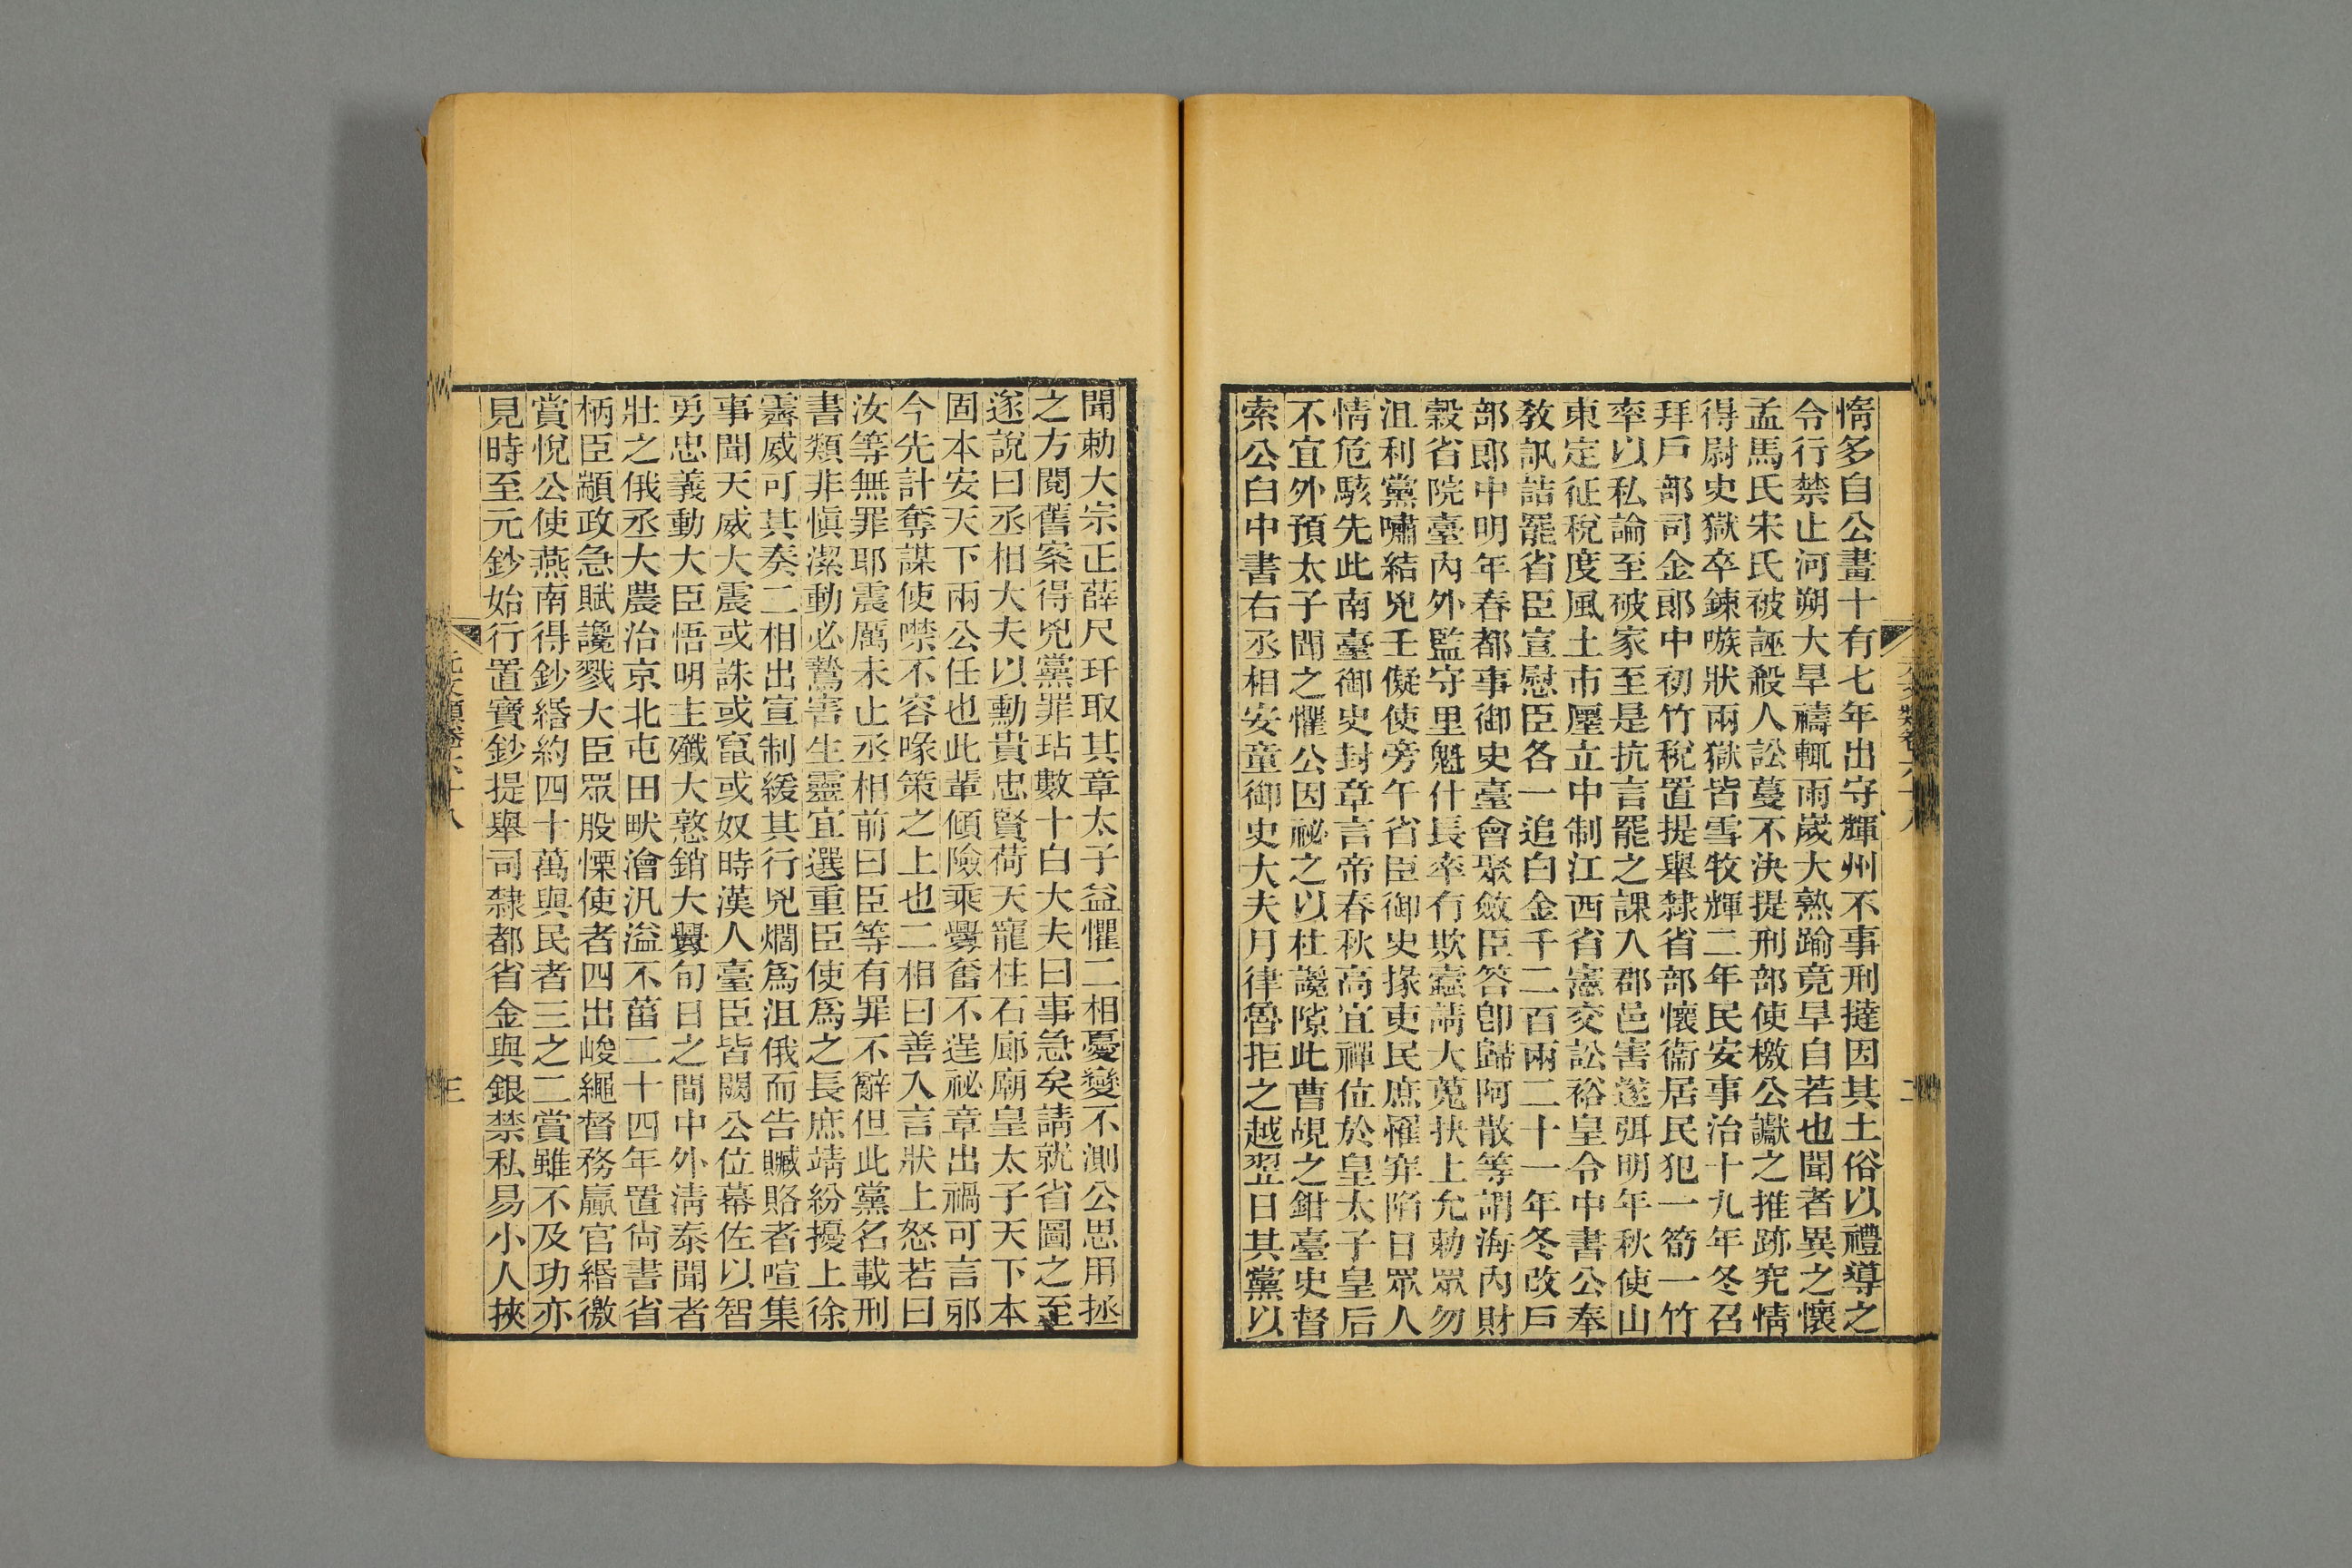 惰多自公畫十有七年出守輝州不事刑撻因其土俗以禮導之
令行禁止河朔大旱禱輒雨歲大熟踰竟旱自若也聞者異之懷
孟馬氏宋氏被誣殺人訟蔓不決提刑部使檄公讞之推跡究情
得尉史獄卒鍊嗾狀兩獄皆雪牧輝二年民安事治十九年冬召
拜戶部司金郎中初竹稅置提舉隸省部懷衞居民犯一筍一竹
率以私論至破家至是抗言罷之課入郡邑害遂弭明年秋使山
東定征稅度風土市廛立中制江西省憲交訟裕皇令中書公奉
敎訊詰罷省臣宣慰臣各一追白金千二百兩二十一年冬改戶
部郎中明年春都事御史臺會聚斂臣答卽歸阿散等謂海內財
穀省院臺內外監守里魁什長率有欺蠹請大蒐抉上允勅眾勿
沮利黨嘯結兇壬儗使旁午省臣御史掾吏民庶罹穽陷日眾人
情危駭先此南臺御史封章言帝春秋高宜禪位於皇太子皇后
不宜外預太子聞之懼公因祕之以杜讒隙此曹覘之鉗臺史督
索公白中書右丞相安童御史大夫月律魯拒之越翌日其黨以
聞勅大宗正薛尺玕取其章太子益懼二相憂變不測公思用拯
之方閱舊案得兇黨罪玷數十白大夫曰事急矣請就省圖之至
遂說曰丞相大夫以勳貴忠賢荷天寵柱石廊廟皇太子天下本
固本安天下兩公任也此輩傾險乘釁奮不逞祕章出禍可言邪
今先計奪謀使噤不容喙策之上也二相曰善入言狀上怒若曰
汝等無罪耶震厲未止丞相前曰臣等有罪不辭但此黨名載刑
書類非愼潔動必鷙害生靈宜選重臣使爲之長庶靖紛擾上徐
霽威可其奏二相出宣制緩其行兇燗爲沮俄而告贓賂者喧集
事聞天威大震或誅或竄或奴時漢人臺臣皆闕公位幕佐以智
勇忠義動大臣悟明主殲大憝銷大釁旬日之間中外淸泰聞者
壯之俄丞大農治京北屯田畎澮汎溢不菑二十四年置尙書省
柄臣顓政急賦讒戮大臣眾股慄使者四出峻繩督務贏官緡徼
賞悅公使燕南得鈔緡約四十萬與民者三之二賞雖不及功亦
見時至元鈔始行置寶鈔提舉司隸都省金與銀禁私易小人挾